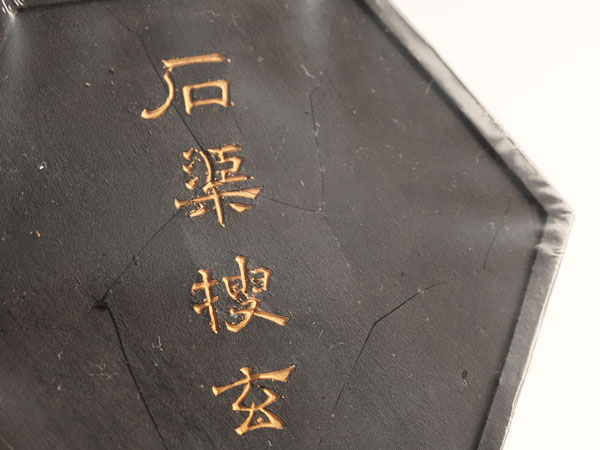 石渠搜玄